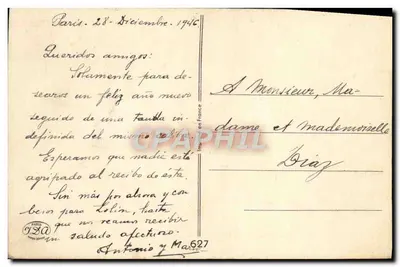 Paris - 28 - Diciembre - 1946
Queridos amigos:
Solamente para de-
searos un feliz año nuevo
seguido de una tanda in-
definida del mismo
Esperamos que nadie esté
agripado al recibo de esta.
Sin más por ahora y con
besos para Lolin, hasta
que nos veamos recibir
un saludo afectuoso
Antonio y
A Monsieur, Ma-
dame et mademoiselle
Diaz
en France
CPAPHIL
627